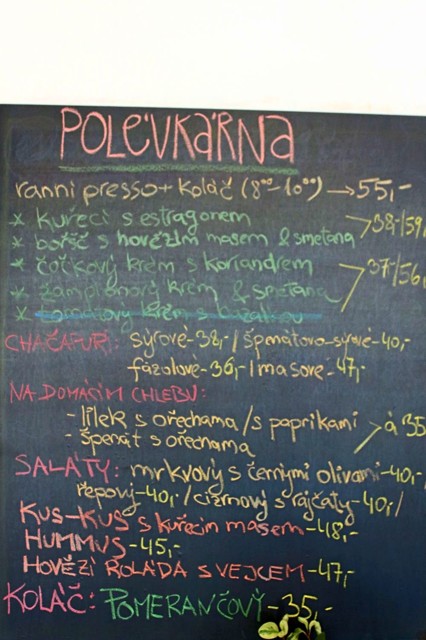 POLÉVKÁRNA
ranní presso + koláč (8⁰⁰-10⁰⁰) → 55,-
* kuřecí s estragonem
* boršč s hovězím masem & smetana 38,-/59,
* čočkový krém s koriandrem
* žampionový krém & smetana 37,-/56,
* krém s bazalkou
CHAČAPURI: sýrové-38,-/špenátovo-sýrové-40,-
fazolové-36,-/masové-47,-
NA DOMÁCÍM CHLEBU:
- lilek s ořechama/s paprikami
- špenát s ořechama á 35
SALÁTY: mrkvový s černými olivami-40,-
řepový-40,-/cizrnový s rajčaty-40,-/
KUS-KUS s kuřecím masem-48,-
HUMMUS-45,-
HOVĚZÍ ROLÁDA S VEJCEM-47,-
KOLÁČ: POMERANČOVÝ-35,-